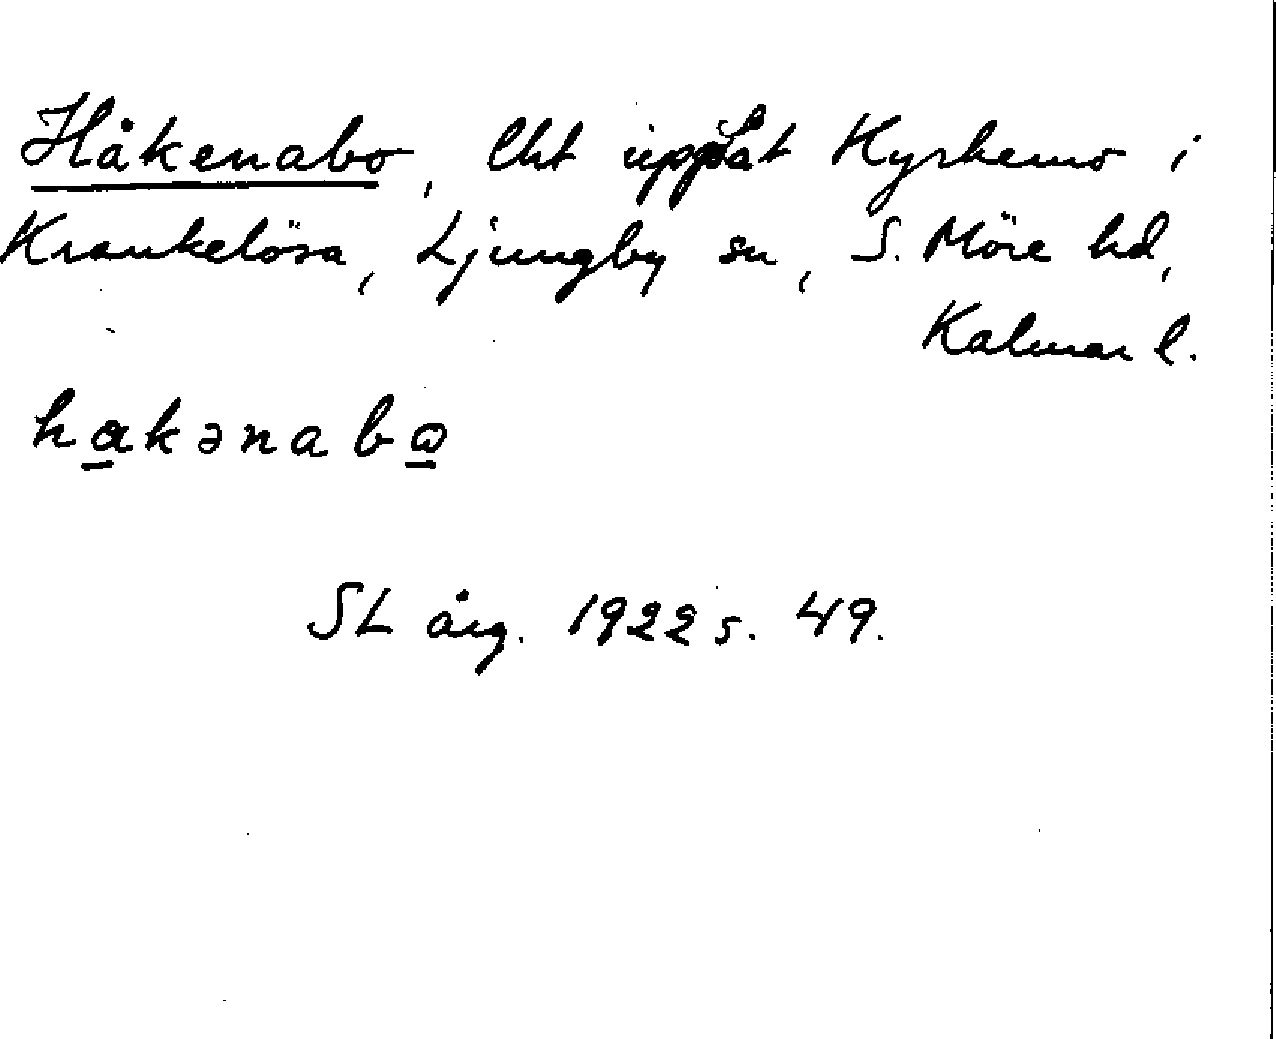 Håkenabo, lht uppåt Kyrkemo i
Krankelösa, Ljungby sn, S. Möre hd,
Kalmar l.
hakənabɷ
SL årg. 1922 s. 49.